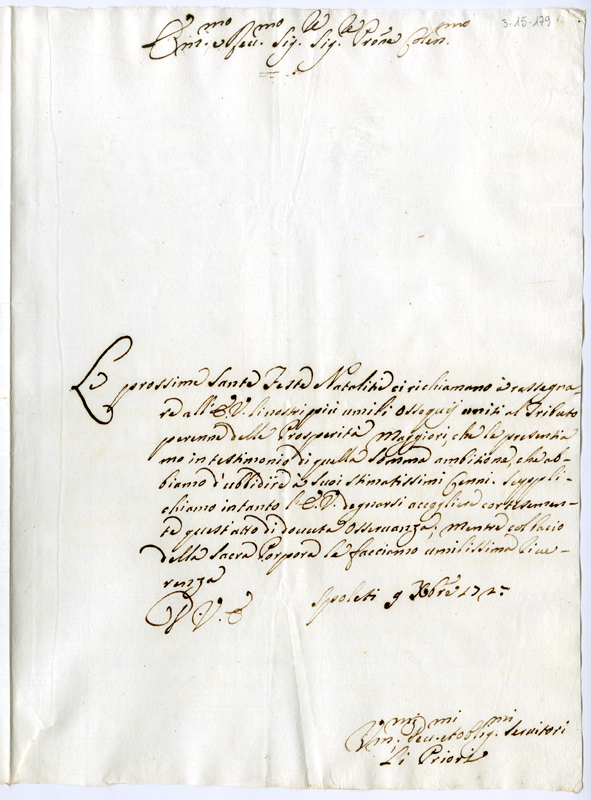 3-15-179
Em.mo e Rev.mo Sig.re Sig.re Prone Colen.mo
Le prossime Sante Feste Natalitie ci richiamano à rassegna-
re all'E.V. li nostri più umili ossequij uniti al Tributo
perenne delle Prosperità Maggiori, che le presentia
mo in testimonio di quella somma ambitione, che ab-
biamo d'ubbidire a suoi stimatissimi Cenni. Suppli-
chiamo intanto l'E.V. degnarsi accogliere cortesemen-
te quest'atto di dovuta osservanza, mentre col bacio
della Sacra Porpora le facciamo umilissima Rive-
renza
D.V.E
Spoleti 9 Xbre
Um.mi Dev.mi et oblig.mi Servitori
Li Priori